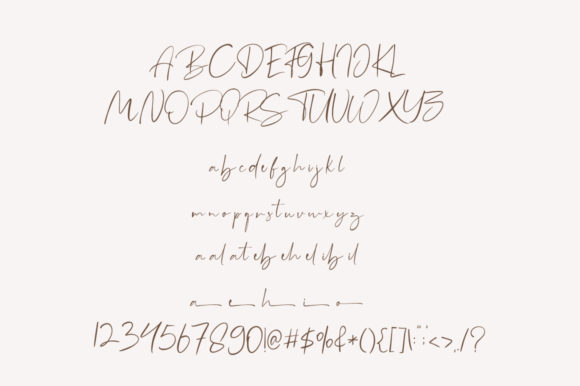 ABCDEFGHIJKL
MNOPQRSTUVWXYZ
abcdefghijkl
mnopqrstuvwxyz
al at eb eh el ib il
a e h i o
1234567890!@#$%&*(){[]\:;<>,./?